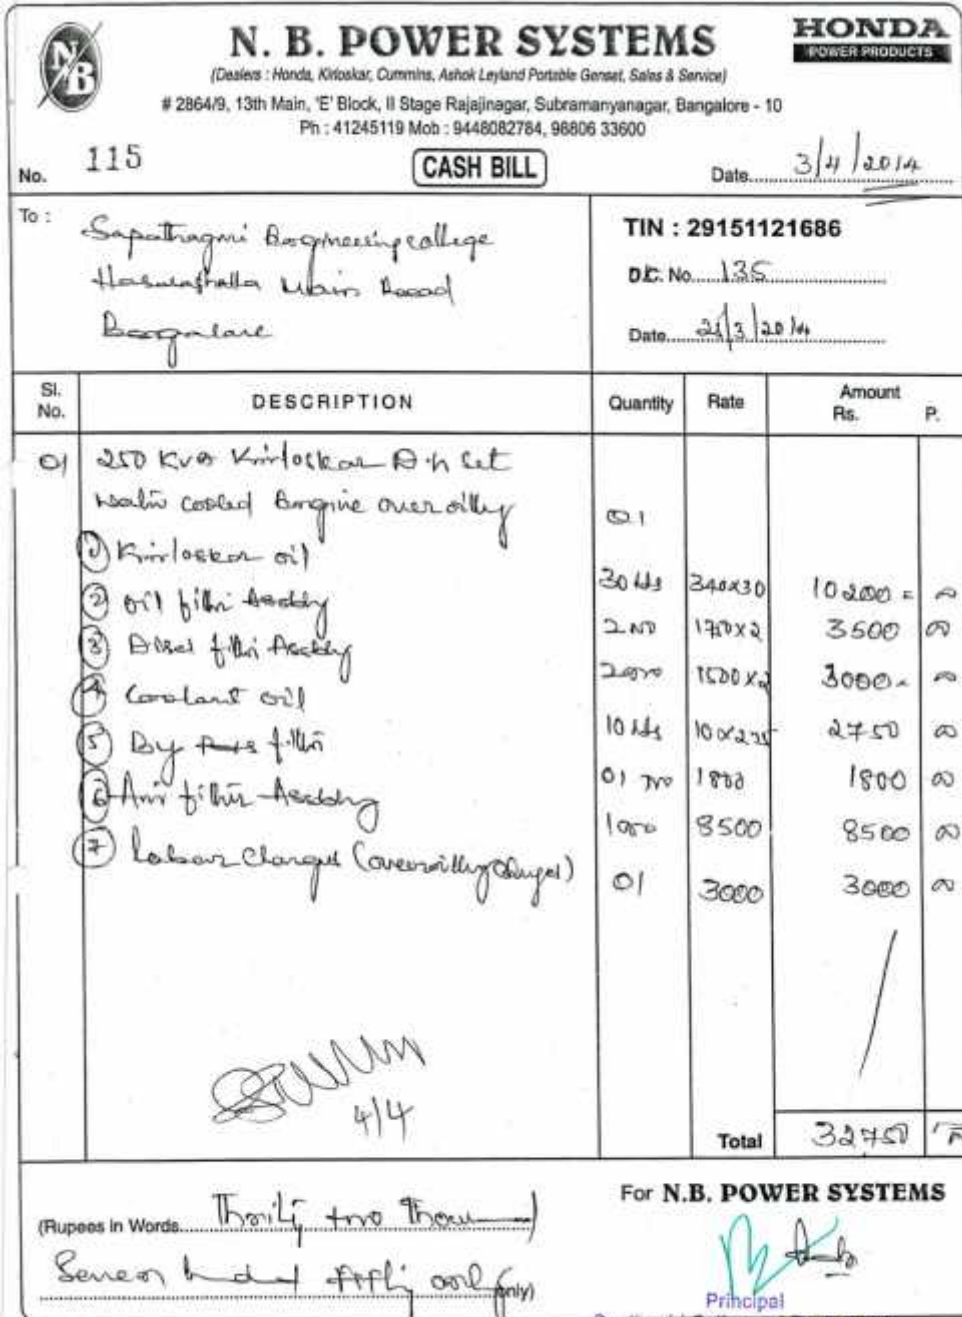 N. B. POWER SYSTEMS
HONDA
POWER PRODUCTS
NB
(Dealers : Honda, Kirloskar, Cummins, Ashok Leyland Portable Genset, Sales & Service)
# 2864/9, 13th Main, 'E' Block, II Stage Rajajinagar, Subramanyanagar, Bangalore - 10
Ph : 41245119 Mob : 9448082784, 98806 33600
No. 115 CASH BILL Date 3/4/2014
To : Sapathagmi Engineering college
Main Road
Bangalore
TIN : 29151121686
D.C. No. 135
Date 21/3/2014
Sl. No. DESCRIPTION Quantity Rate Amount Rs. P.
01 250 KVA Kirloskar D.h Set
cooled Engine 01
1 Kirloskar oil 30 lts 340x30 10200 = 00
2 oil filtr 2 NO 1750x2 3500 00
3 filtr 2 1500x2 3000 00
4 Coolant oil 10 lts 10x275 2750 00
5 By Pass filtr 01 no 1800 1800 00
6 Air filtir 8500 8500 00
7 Labour Charges 01 3000 3000 00
4/4
Total 32750
(Rupees in Words Thirty two
only)
For N.B. POWER SYSTEMS
Principal